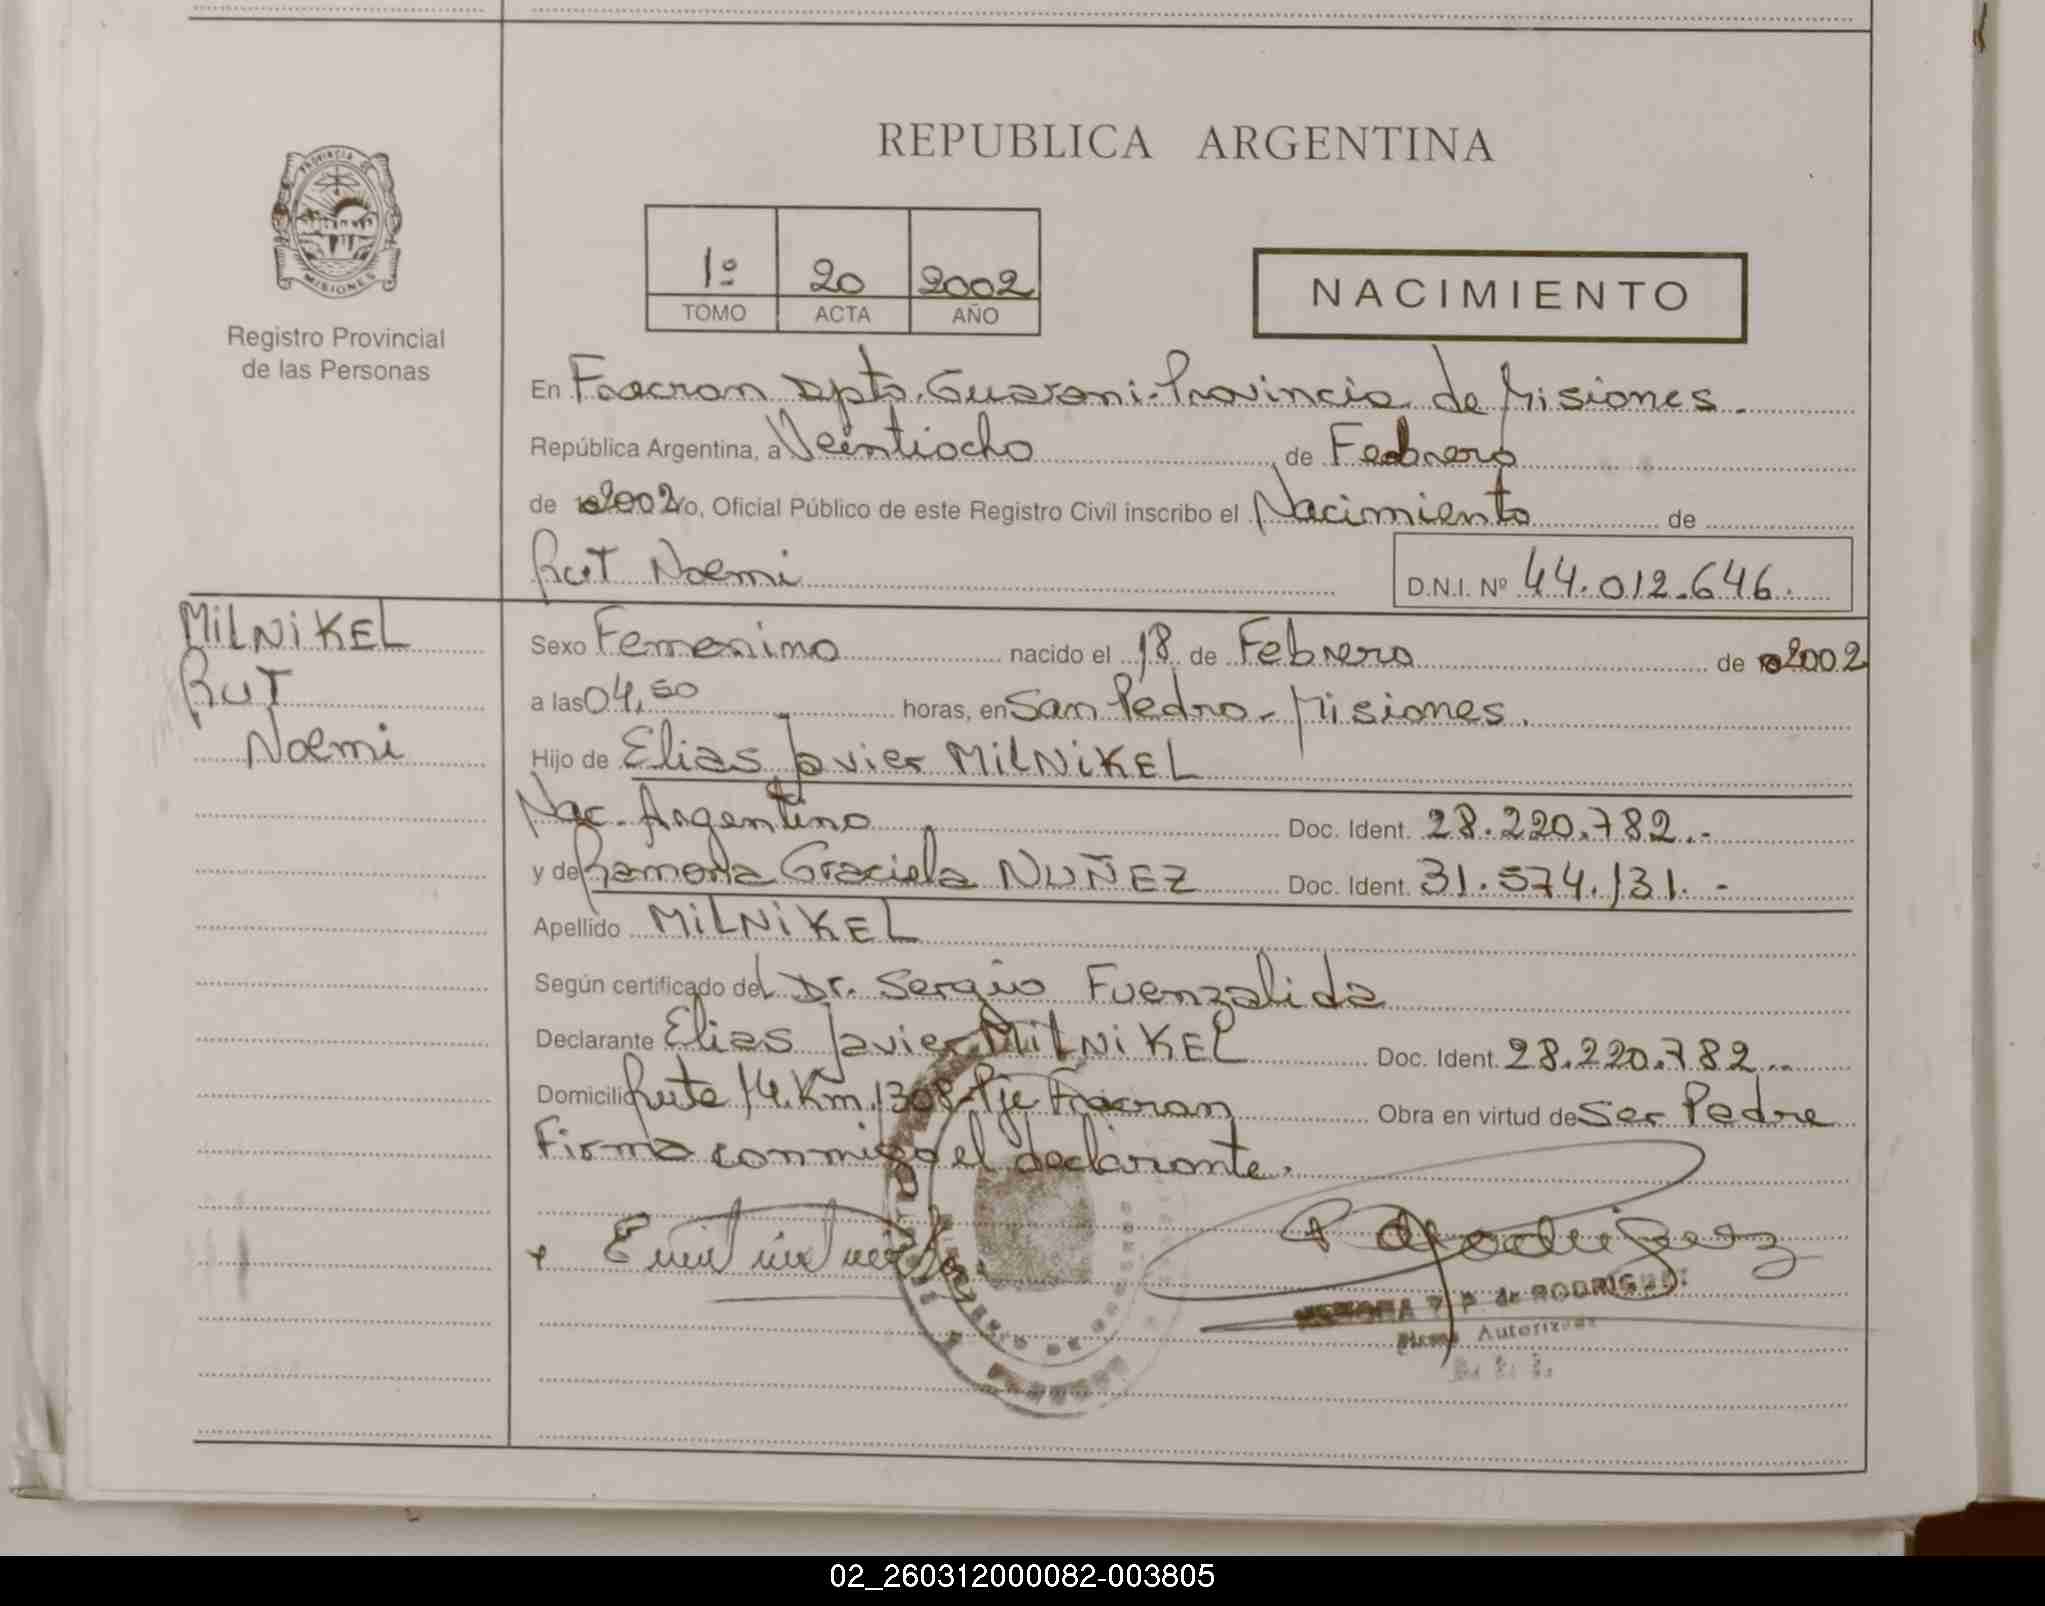 REPUBLICA ARGENTINA
PROVINCIA DE
MISIONES
Registro Provincial
de las Personas
1º 20 2002
TOMO ACTA AÑO
NACIMIENTO
En Fracran Dpto. Guarani-Provincia de Misiones.
República Argentina, a Veintiocho de Febrero
de 2002 yo, Oficial Público de este Registro Civil inscribo el Nacimiento de
Rut Noemi D.N.I. Nº 44.012.646.
MILNIKEL
Rut
Noemi
Sexo Femenino nacido el 18 de Febrero de 2002
a las 04,50 horas, en San Pedro - Misiones.
Hijo de Elias Javier MILNIKEL
Nac. Argentino Doc. Ident. 28.220.782.-
y de Ramona Graciela NUÑEZ Doc. Ident. 31.574.131.-
Apellido MILNIKEL
Según certificado del Dr. Sergio Fuenzalida
Declarante Elias Javier MILNIKEL Doc. Ident. 28.220.782..
Domicilio Ruta 14.Km.1308-Pje Fracran Obra en virtud de Ser Padre
Firma conmigo el declarante.
P. de RODRIGUEZ
Firma Autorizada
02_260312000082-003805